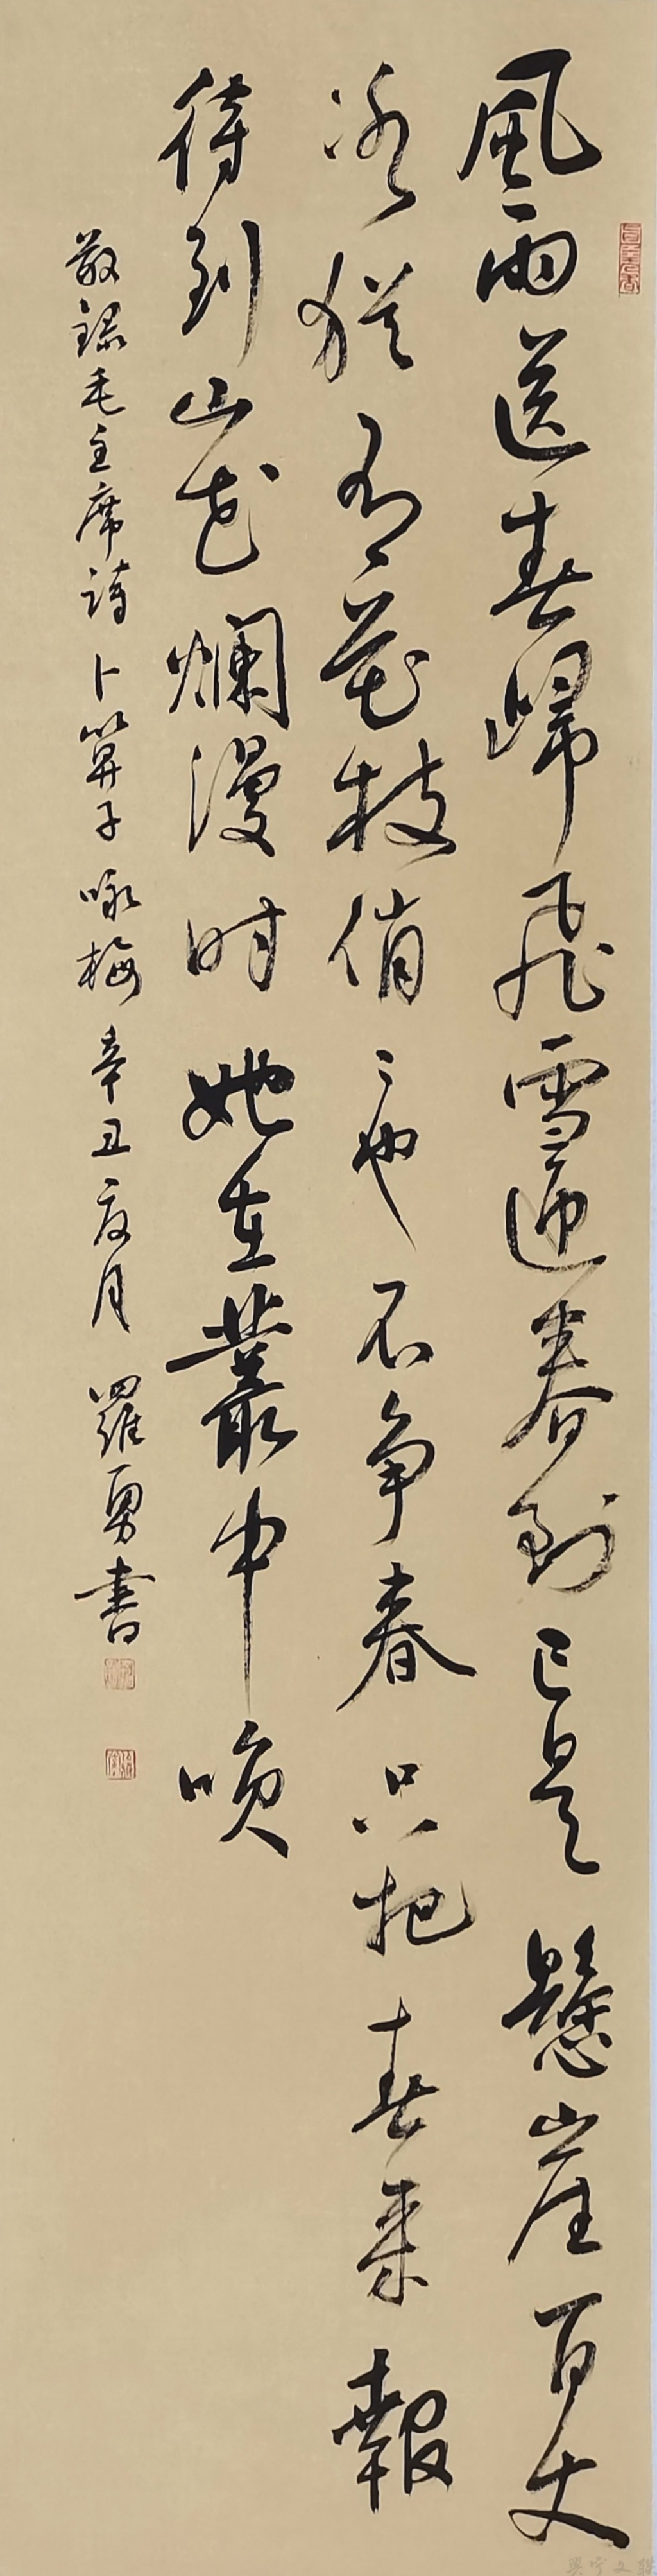 風雨送春歸飛雪迎春到已是懸崖百丈
冰猶有花枝俏〻也不争春只把春來報
待到山花爛漫时她在叢中唤
敬録毛主席詩卜算子咏梅辛丑夏月羅勇書